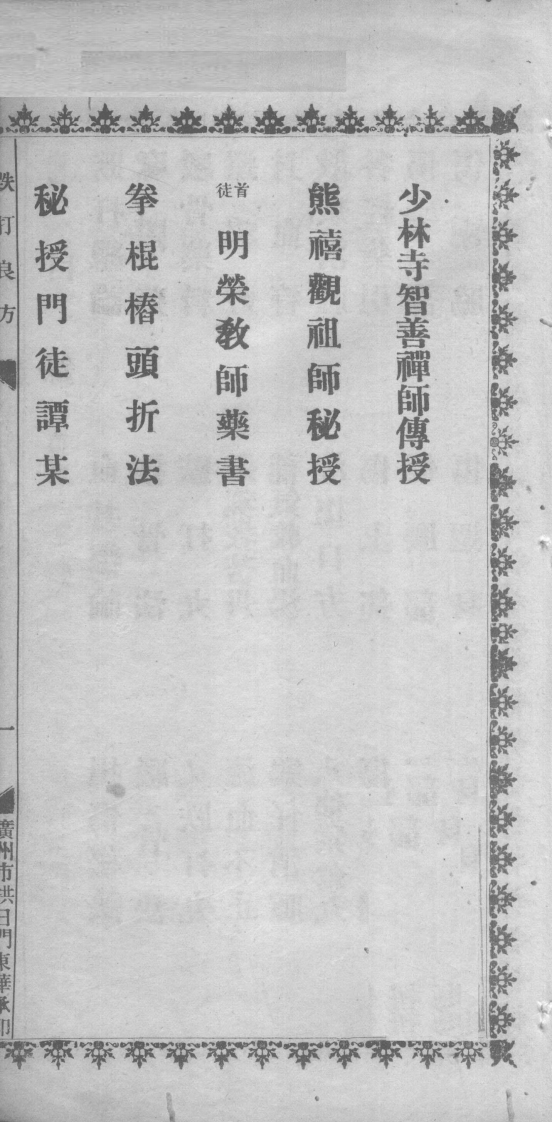 少林寺智善禪師傳授
熊禧觀祖師秘授
首徒
明榮教師藥書
拳棍樁頭折法
秘授門徒譚某
跌打良方
一
廣州市拱日門東華承印